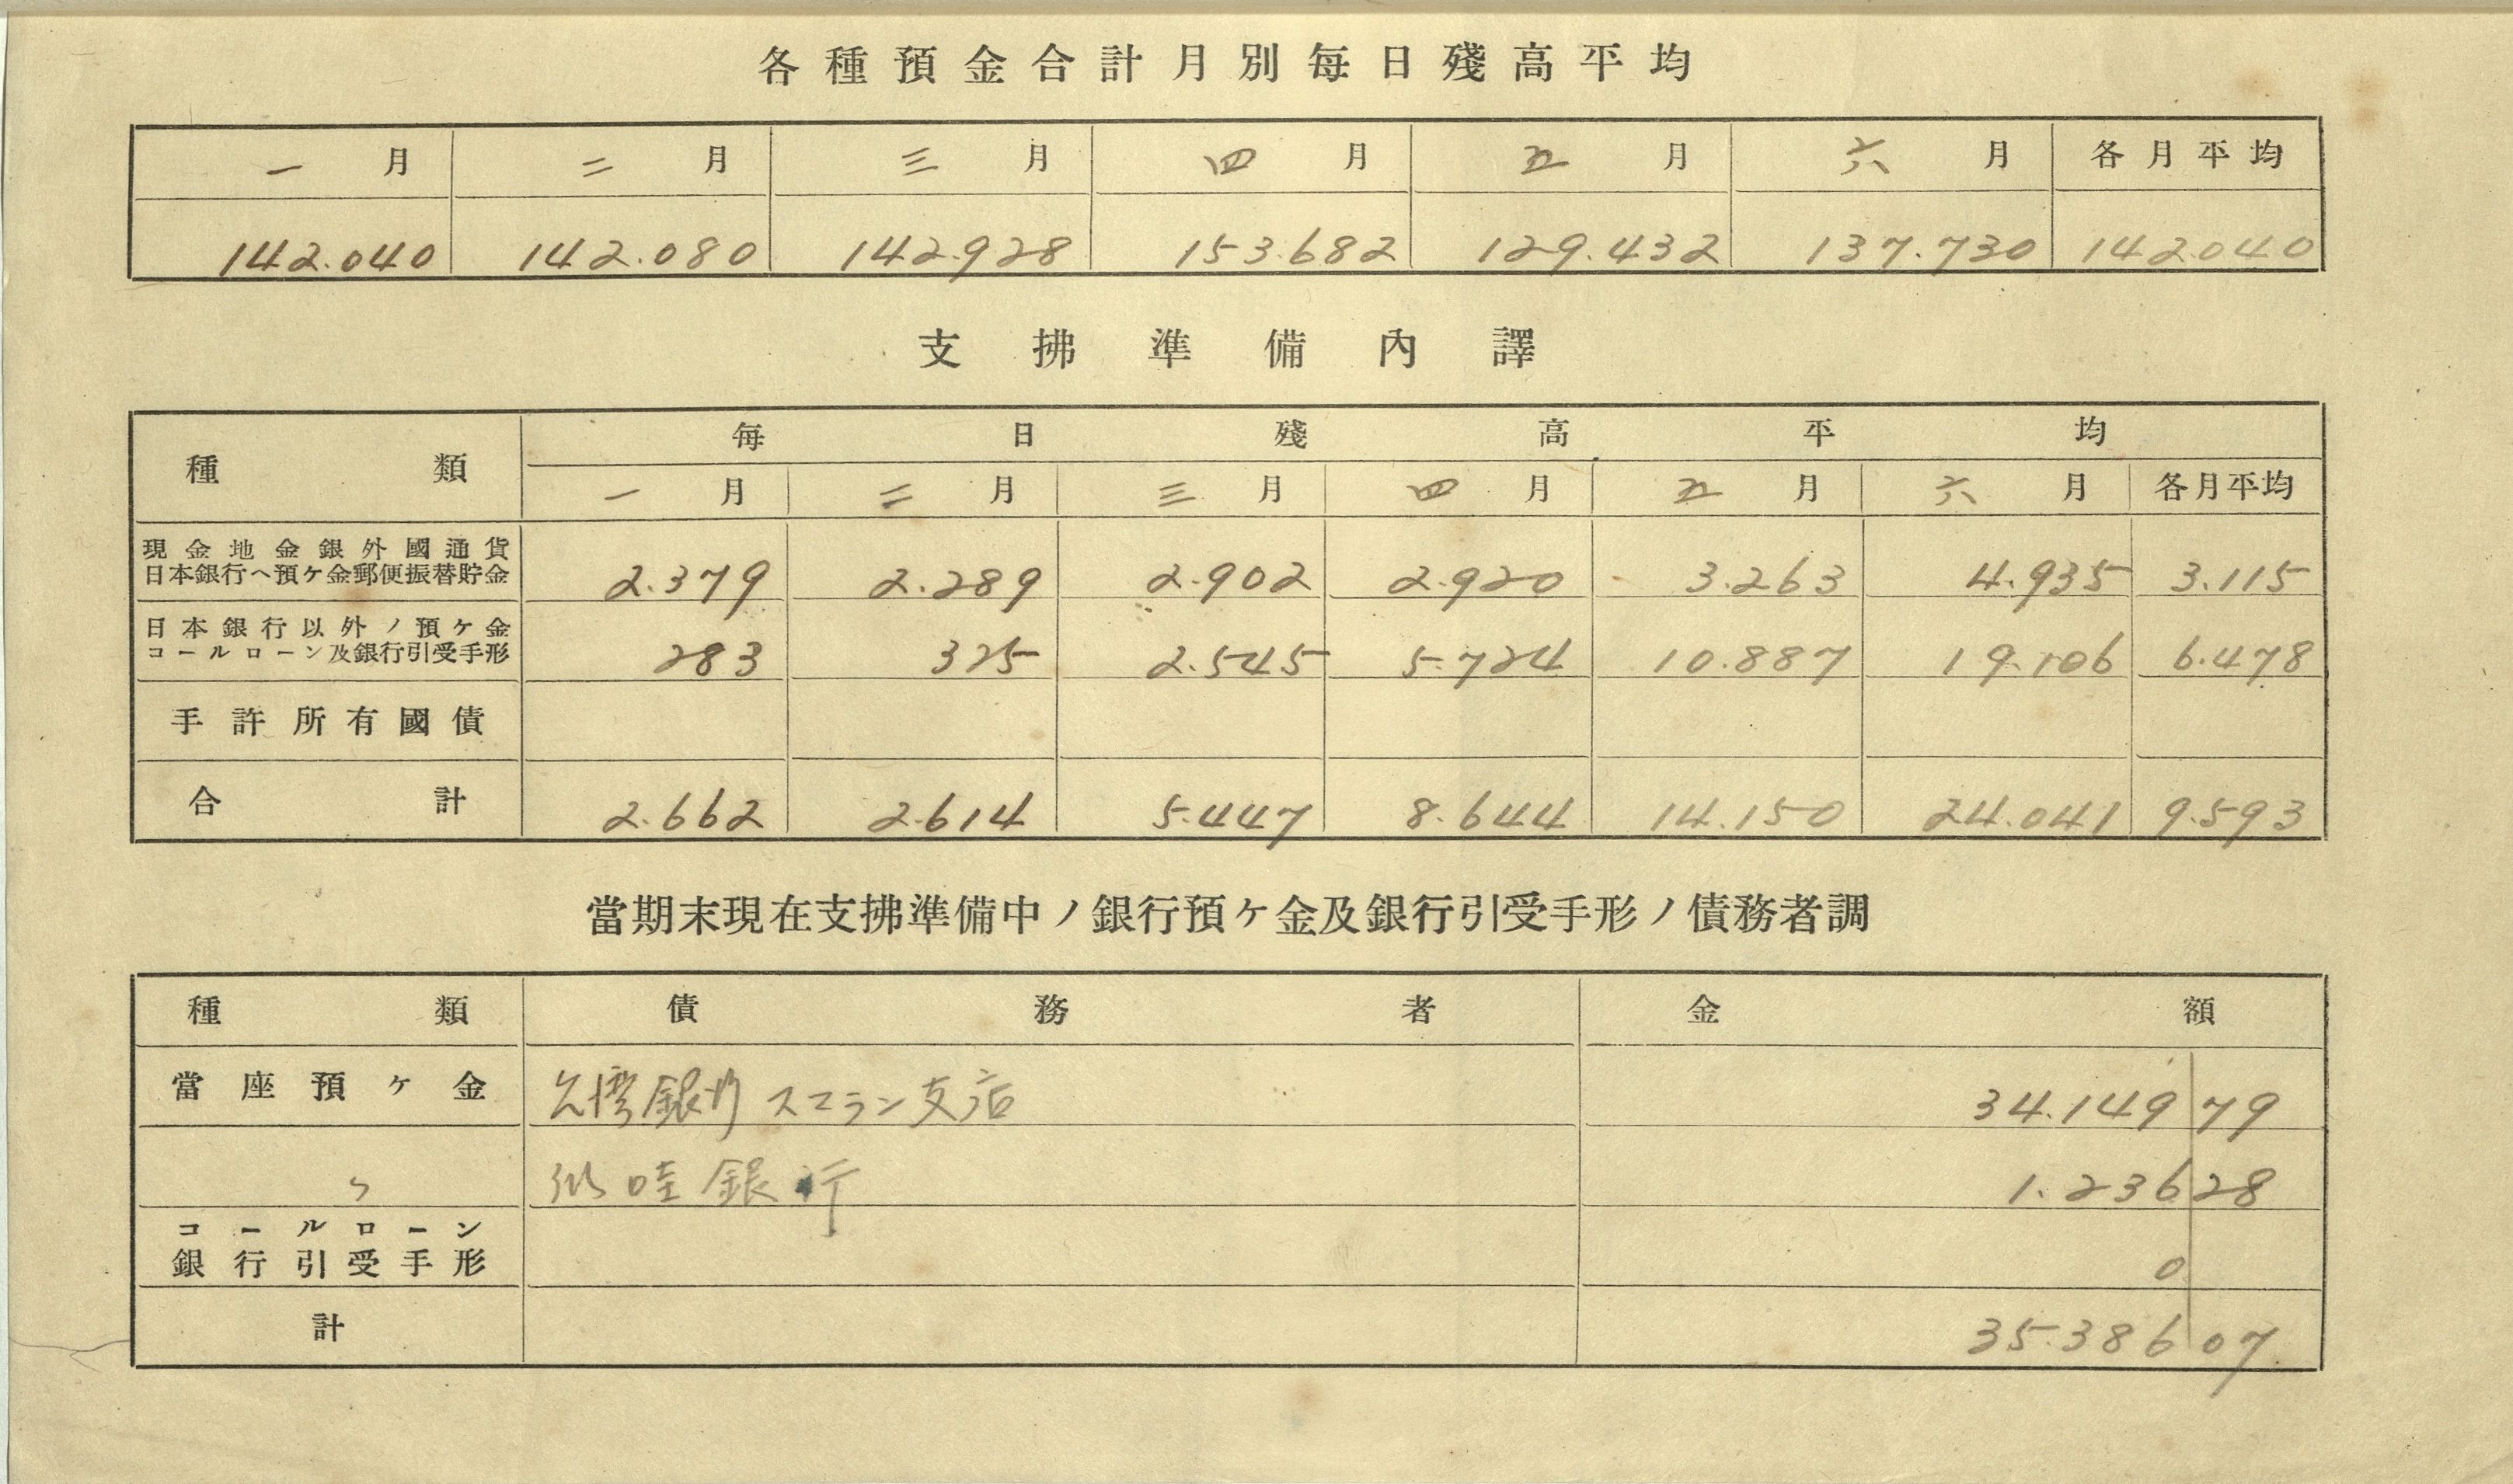 各種預金合計月別每日殘高平均
一月 二月 三月 四月 五月 六月 各月平均
142.040 142.080 142.928 153.682 129.432 137.730 142.040
支拂準備內譯
種類 每日殘高平均
一月 二月 三月 四月 五月 六月 各月平均
現金地金銀外國通貨
日本銀行ヘ預ケ金郵便振替貯金 2.379 2.289 2.902 2.920 3.263 4.935 3.115
日本銀行以外ノ預ケ金
コールローン及銀行引受手形 283 325 2.545 5.724 10.887 19.106 6.478
手許所有國債
合計 2.662 2.614 5.447 8.644 14.150 24.041 9.593
當期末現在支拂準備中ノ銀行預ケ金及銀行引受手形ノ債務者調
種類 債務者 金額
當座預ケ金 台湾銀行スマラン支店 34.149 79
〃 爪哇銀行 1.236 28
コールローン
銀行引受手形 0
計 35.386 07